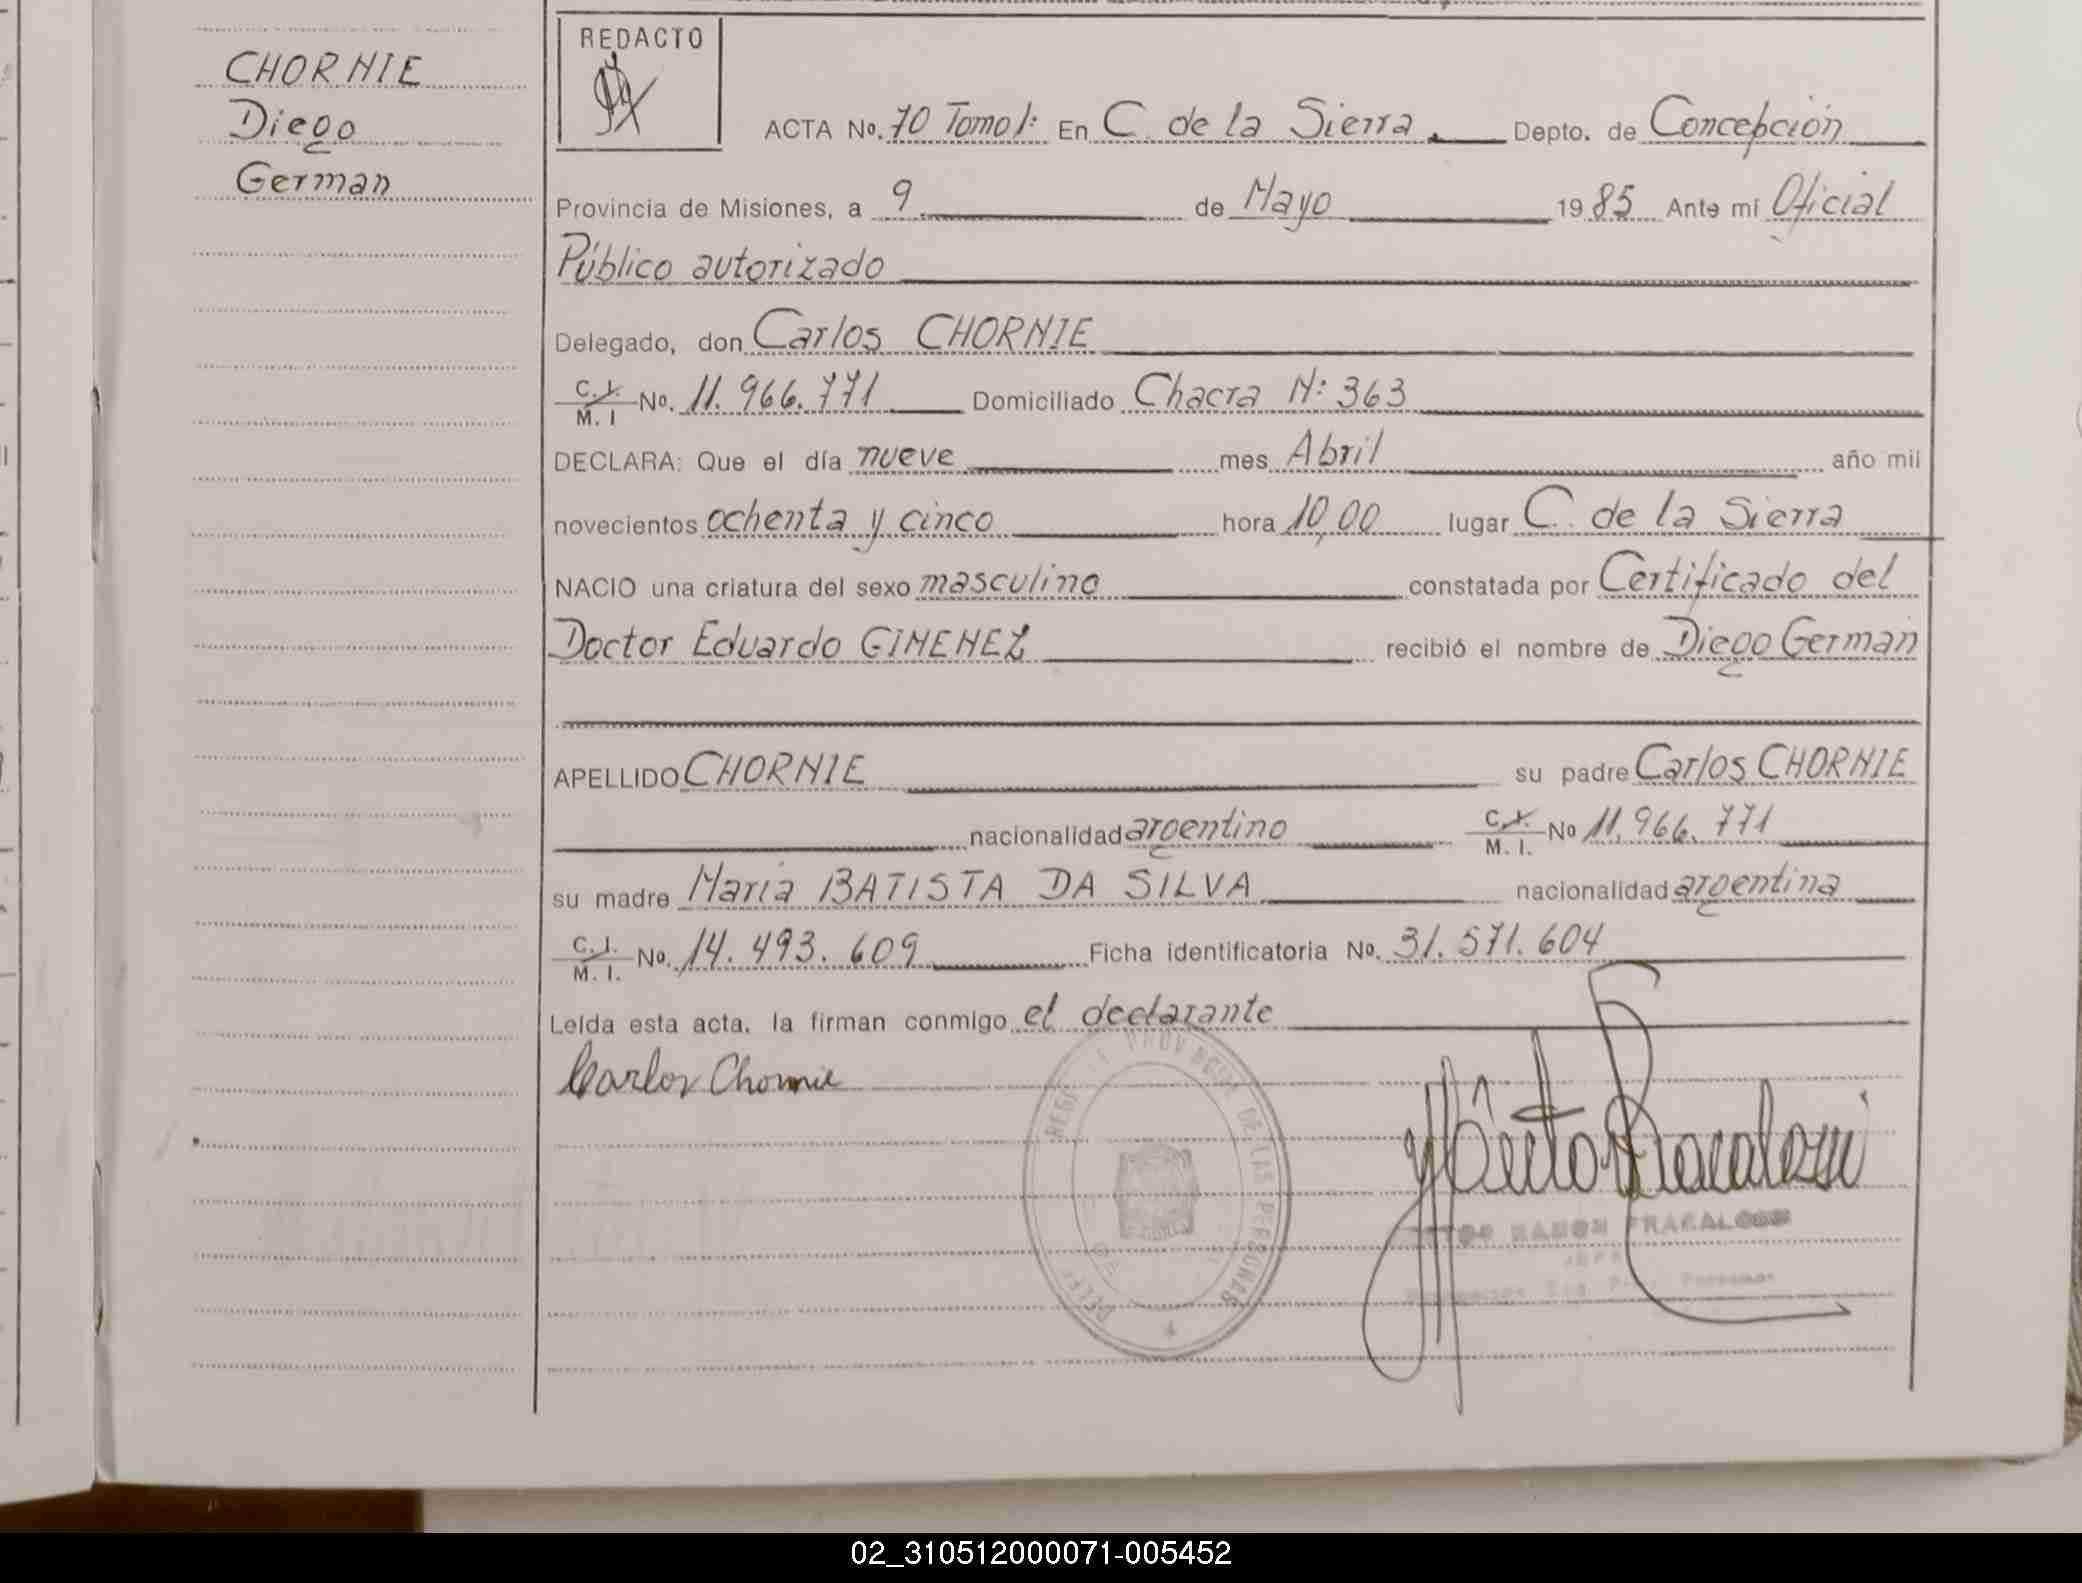 CHORNIE
Diego
German
REDACTO
ACTA No. 70 Tomo 1: En C. de la Sierra. Depto. de Concepción
Provincia de Misiones, a 9 de Mayo 1985 Ante mí Oficial
Público autorizado
Delegado, don Carlos CHORNIE
C.I. M. I No. 11.966.771 Domiciliado Chacra N: 363
DECLARA: Que el día nueve mes Abril año mil
novecientos ochenta y cinco hora 10,00 lugar C. de la Sierra
NACIO una criatura del sexo masculino constatada por Certificado del
Doctor Eduardo GIMENEZ recibió el nombre de Diego German
APELLIDO CHORNIE su padre Carlos CHORNIE
nacionalidad argentino C.I. M. I. No 11.966.771
su madre Maria BATISTA DA SILVA nacionalidad argentina
C. I. M. I. No. 14.493.609 Ficha identificatoria No. 31.571.604
Leída esta acta, la firman conmigo el declarante
Carlos Chornie
PROVINCIAL DE LAS PERSONAS
RAMON FRACALOSSI
JEFE
02_310512000071-005452